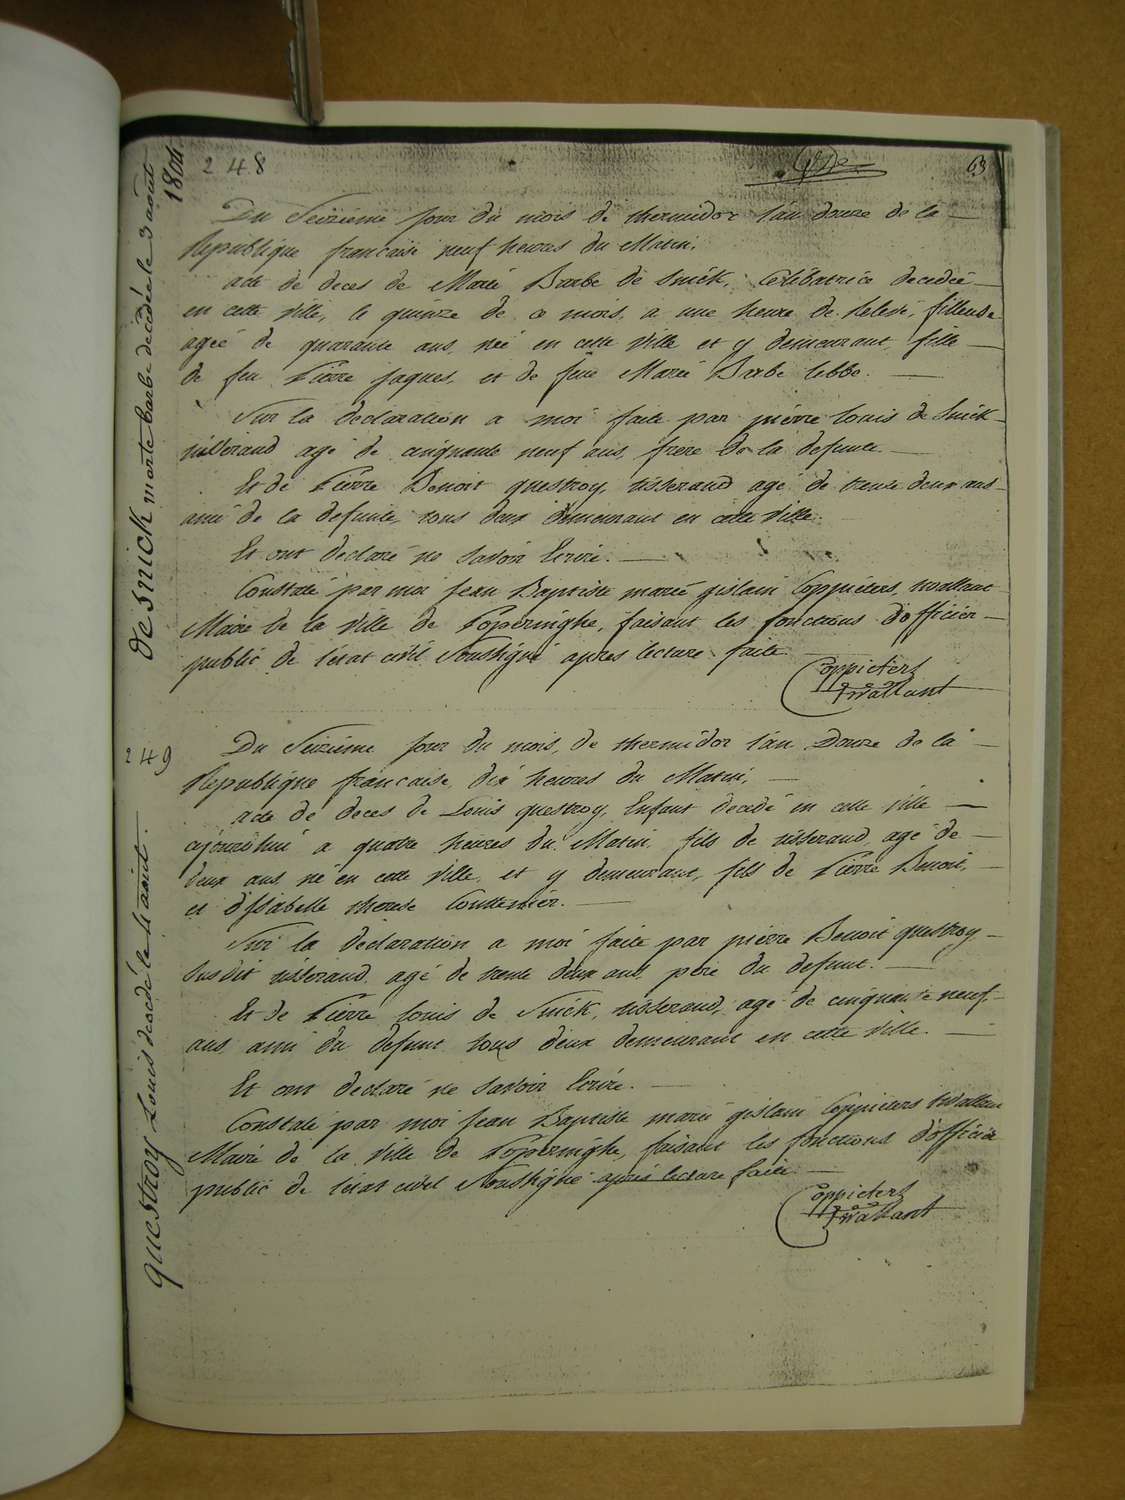 248
63
1804
Du Seizieme jour du mois de thermidor l'an douze de la
Republique française neuf heures du Matin,
acte de deces de Marie Barbe de Snick, Celibatrice decedée
en cette ville, le quinze de ce mois, a une heure de relevé, fileuse
agée de quarante ans, née en cette ville et y demeurant, fille
de feu Pierre jaques, et de feue Marie Barbe lebbe.
Sur la declaration a moi faite par pierre louis de Snick
tisserand agé de cinquante neuf ans, frere de la defunte
Et de Pierre Benoit questroy, tisserand agé de trente deux ans
ami de la defunte, tous deux demeurant en cette ville.
Et ont declaré ne savoir Ecrire.
Constaté par moi jean Baptiste marie gislain Coppieters, wallant
Maire de la ville de Poperinghe, faisant les fonctions d'officier
public de l'etat civil Soussigné apres lecture faite
Coppieters
Wallant
desnick marte barbe decédée le 3 août
249
Du Seizieme jour du mois, de thermidor l'an Douze de la
Republique française, dix heures du Matin,
acte de deces de Louis questroy, Enfant decedé en cette ville
ajourdhui a quatre heures du Matin, fils de tisserand, agé de
deux ans, né en cette ville, et y demeurant, fils de Pierre Benoit,
et d'Isabelle therese Couttenier.
Sur la declaration a moi faite par pierre Benoit questroy
susdit tisserand, agé de trente deux ans, pere du defunt.
Et de Pierre louis de Snick, tisserand, agé de cinquante neuf
ans, ami du defunt tous deux demeurant en cette ville.
Et ont declaré ne savoir Ecrire.
Constaté par moi jean Baptiste marie gislain Coppieters Wallant
Maire de la ville de Poperinghe, faisant les fonctions d'officier
public de l'etat civil Soussigné apres lecture faite
Coppieters
Wallant
questroy Louis decédé le 4 août.